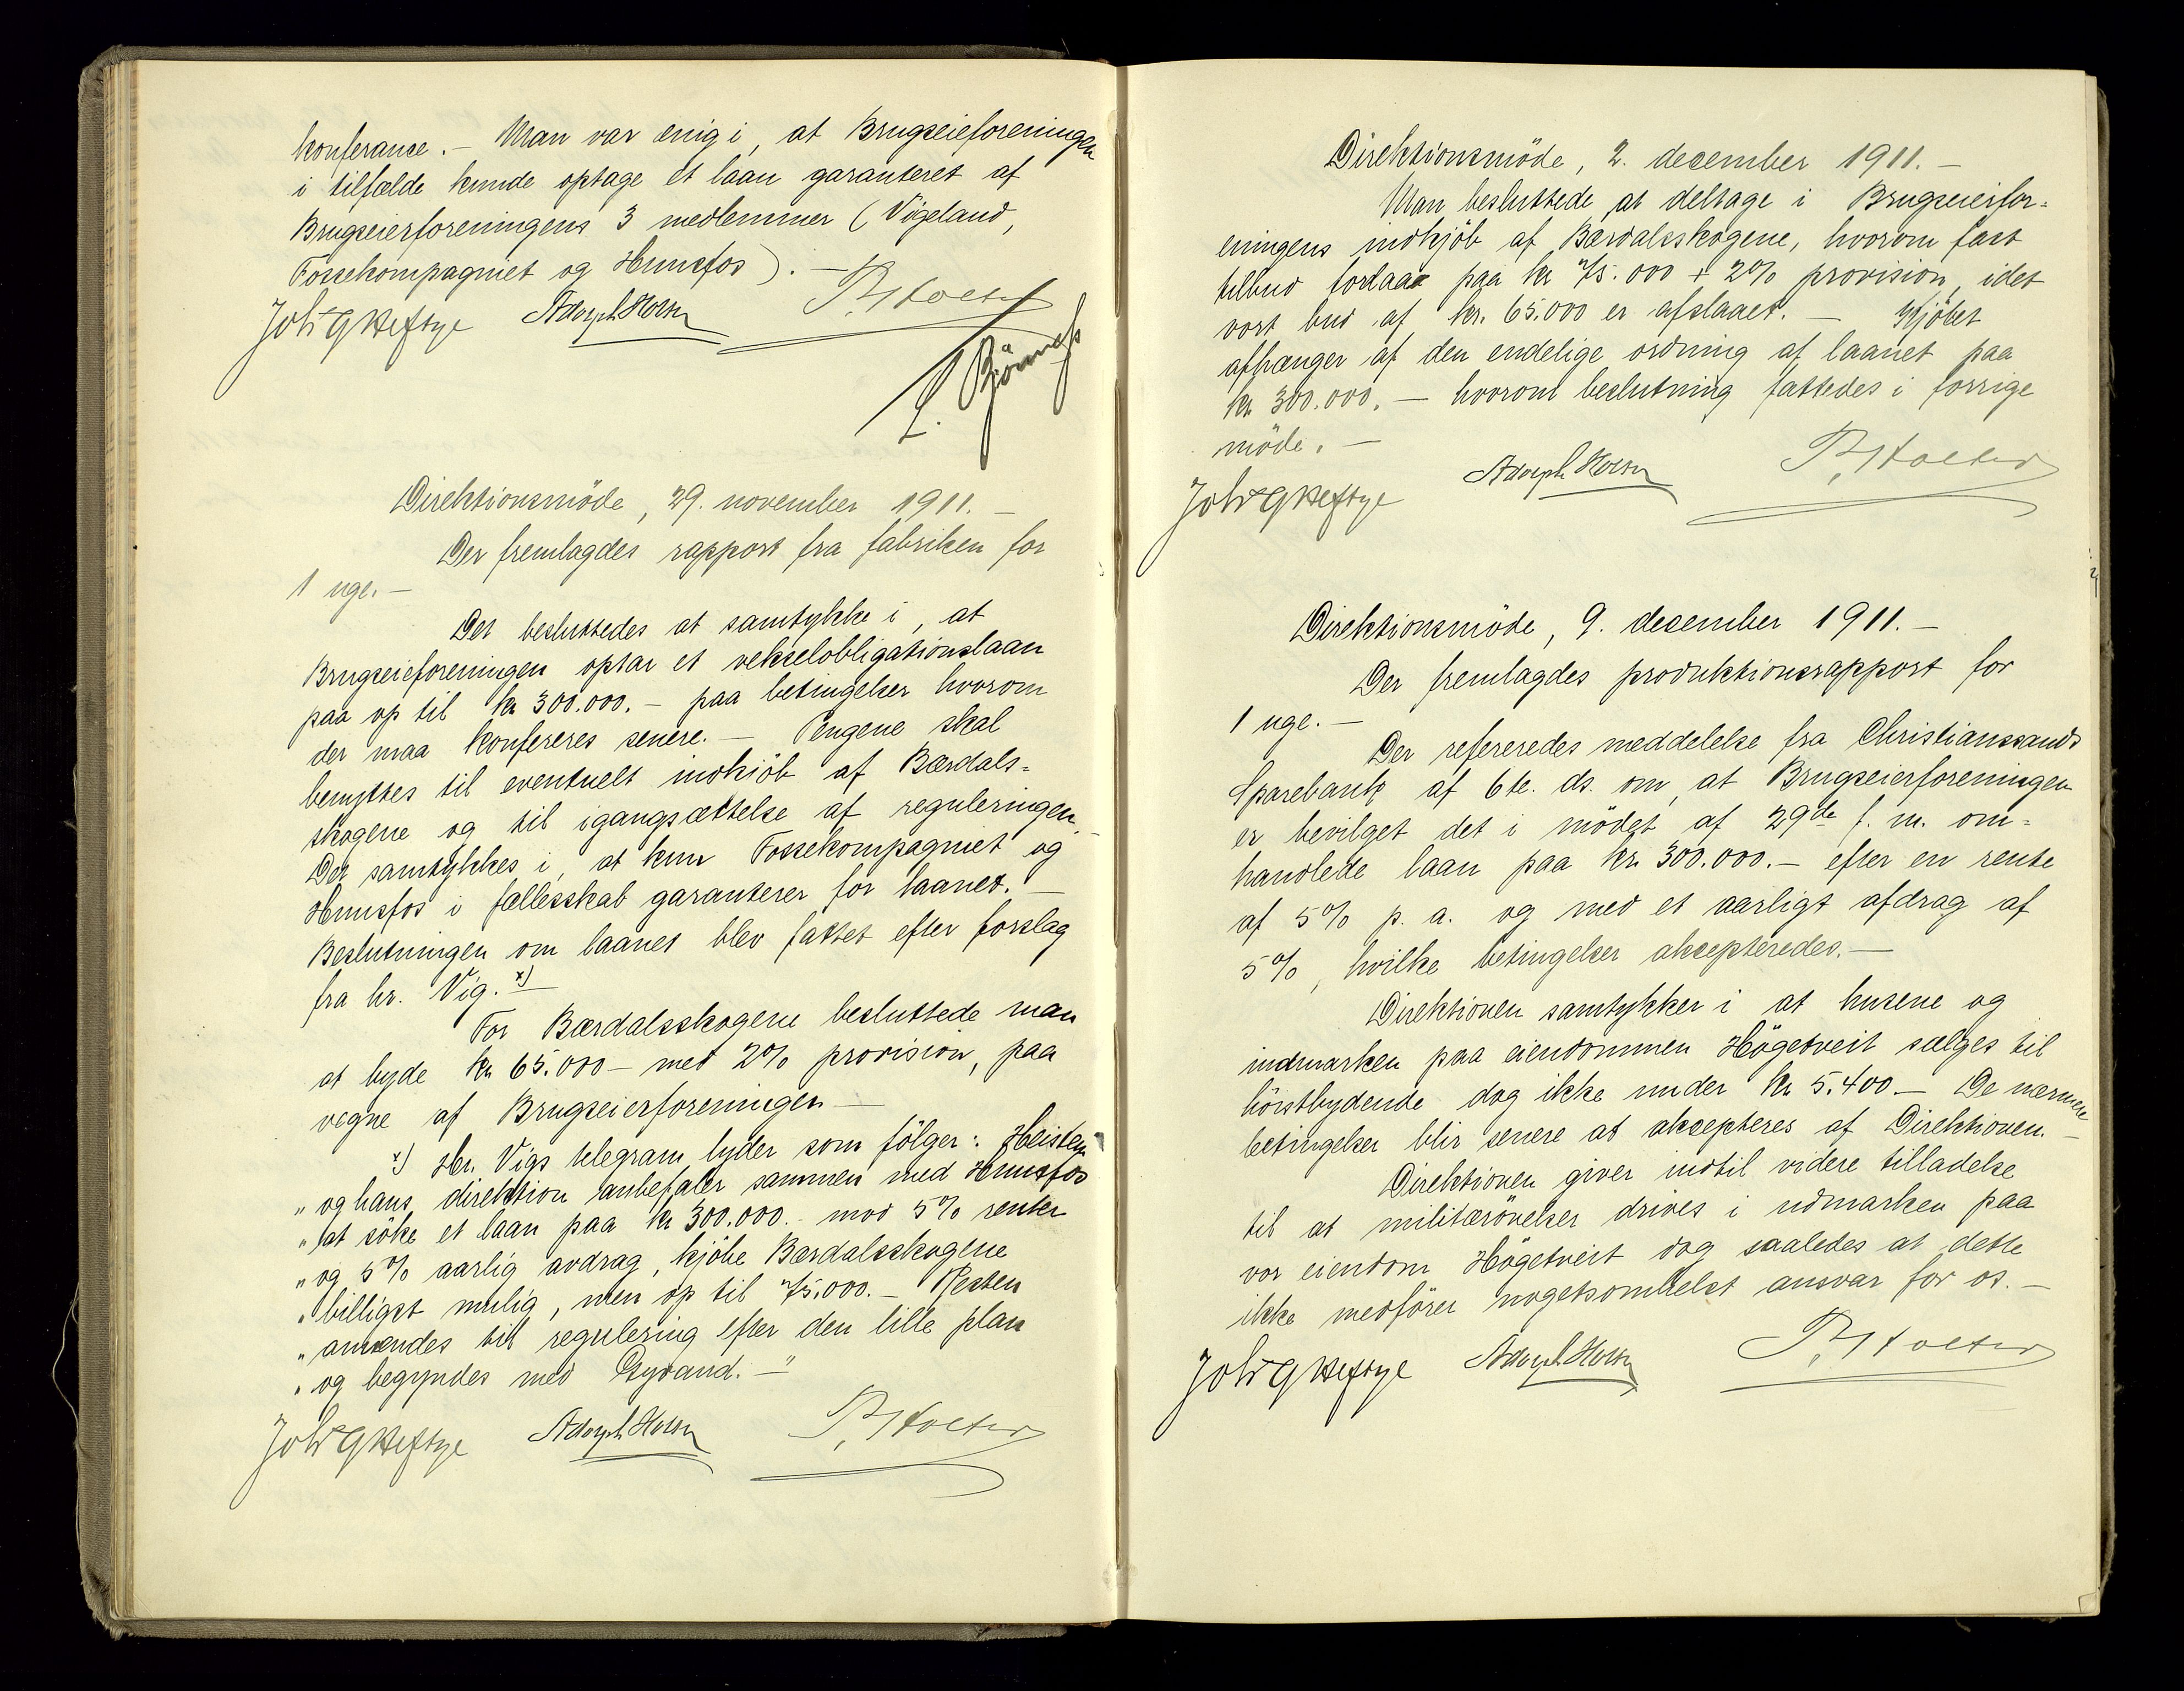 konferance. – Man var enig i, at Brugseieforeningen
i tilfælde kunde optage et laan garanteret af
Brugseierforeningens 3 medlemmer (Vigeland,
Fossekompagniet og Hunsfos). –
Joh G Heftye Adolph Holm P. Holter
Direktionsmöde, 29. november 1911. –
Der fremlagdes rapport fra fabriken for
1 uge. –
Det besluttedes at samtykke i, at
Brugseieforeningen optar et vekselobligationslaan
paa op til kr 300.000. – paa betingelser hvorom
der maa konfereres senere. – Pengene skal
benyttes til eventuelt indkjöb af Bærdals=
skogene og til igangsættelse af reguleringen. –
Det samtykkes i, at kun Fossekompagniet og
Hunsfos i fællesskab garanterer for laanet. –
Beslutningen om laanet blev fattet efter forslag
fra hr. Vig. x) –
For Bærdalsskogene besluttede man
at byde kr 65.000 – med 2% provision, paa
vegne af Brugseierforeningen –
x) Hr. Vigs telegram lyder som fölger: Heistein
" og hans direktion anbefaler sammen med Hunsfos
" at söke et laan paa kr 300.000. – mod 5% renter
" og 5% aarlig avdrag, kjöbe Bærdalsskogene
" billigst mulig, men op til 75.000. – Resten
" anvendes til regulering efter den lille plan
" og begyndes med Gyvand. – "
Joh G Heftye Adolph Holm P. Holter
Direktionsmöde, 2. desember 1911. –
Man besluttede at deltage i Brugseierfor=
eningens indkjöb af Bærdalsskogene, hvorom fast
tilbud forlaa paa kr 75.000 + 2% provision, idet
vort bud af kr. 65.000 er afslaaet. – Kjöbet
afhænger af den endelige ordning af laanet paa
kr 300.000. – hvorom beslutning fattedes i forrige
möde. –
Joh G Heftye Adolph Holm P. Holter
Direktionsmöde, 9. desember 1911. –
Der fremlagdes produktionsrapport for
1 uge. –
Der refereredes meddelelse fra Christianssands
Sparebank af 6te. ds. om, at Brugseierforeningen
er bevilget det i mödet af 29de f. m. om=
handlede laan paa kr. 300.000. – efter en rente
af 5% p. a. og med et aarligt afdrag af
5%, hvilke betingelser aksepteredes. –
Direktionen samtykker i at husene og
indmarken paa eiendommen Högetveit sælges til
höistbydende dog ikke under kr 5.400 – De nærmere
betingelser blir senere at aksepteres af Direktionen. –
Direktionen giver indtil videre tilladelse
til at militærövelser drives i udmarken paa
vor eiendom Högetveit dog saaledes at dette
ikke medförer nogetsomhelst ansvar for os. –
Joh G Heftye Adolph Holm P. Holter